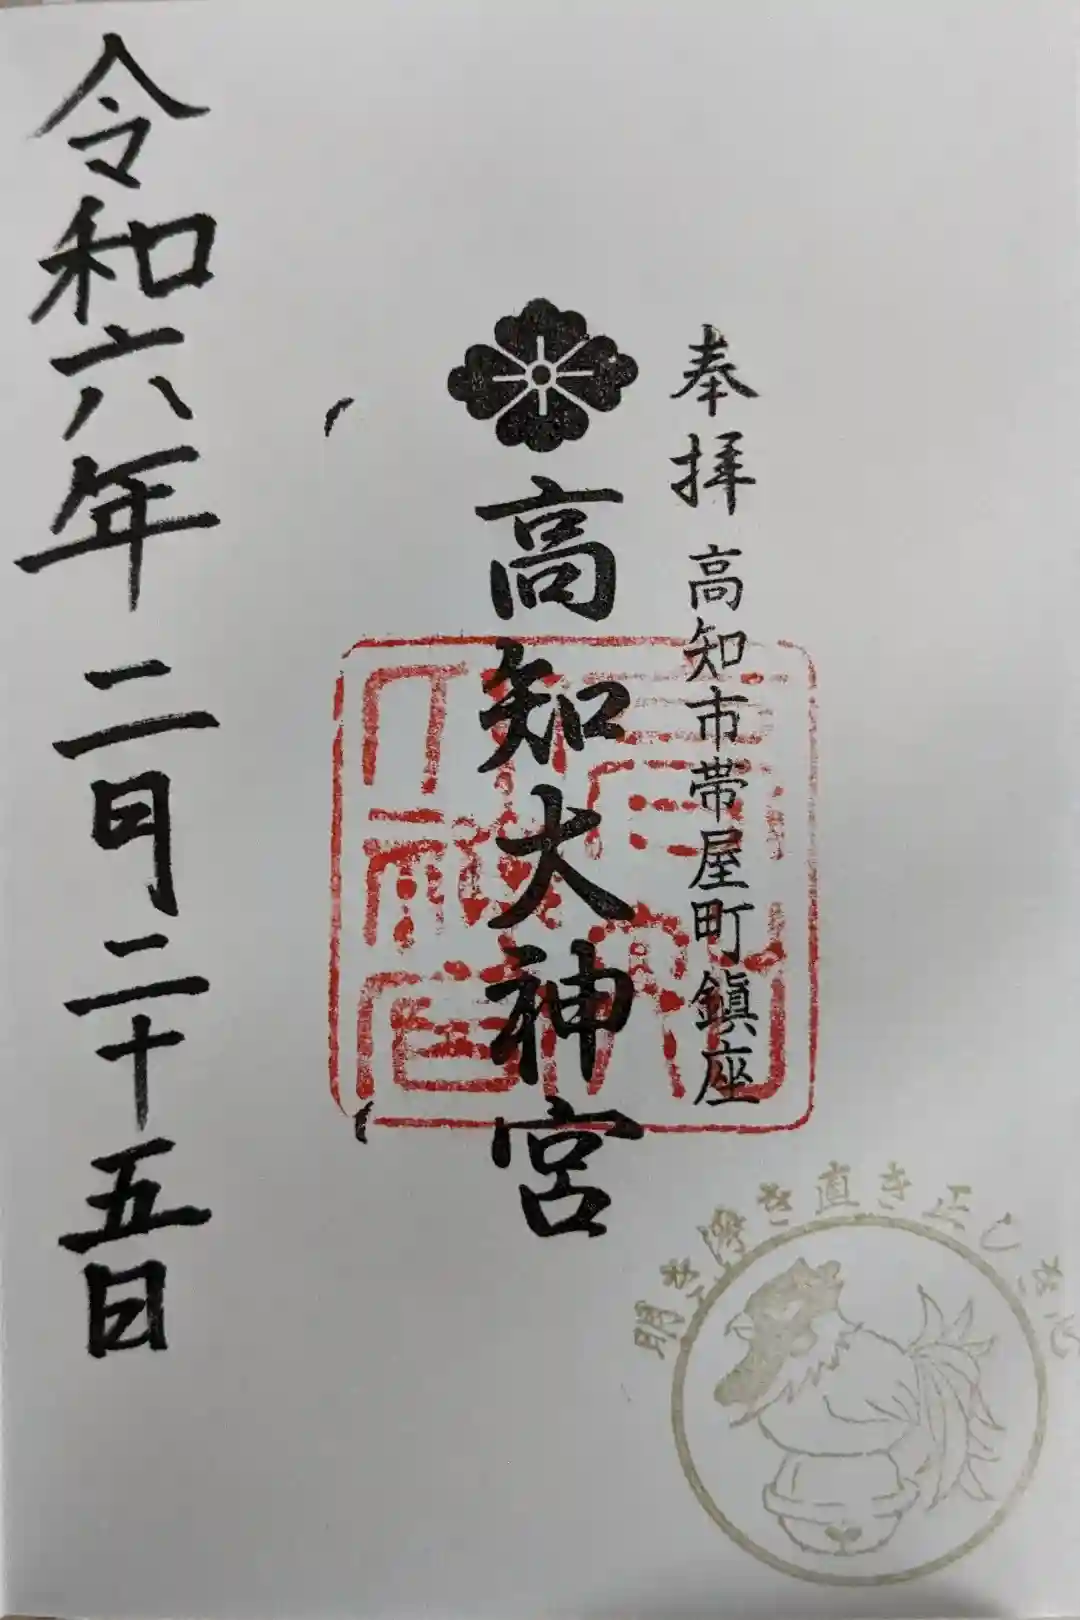 奉拝 高知市帯屋町鎭座
高知大神宮
令和六年二月二十五日
明き き直き正しき心